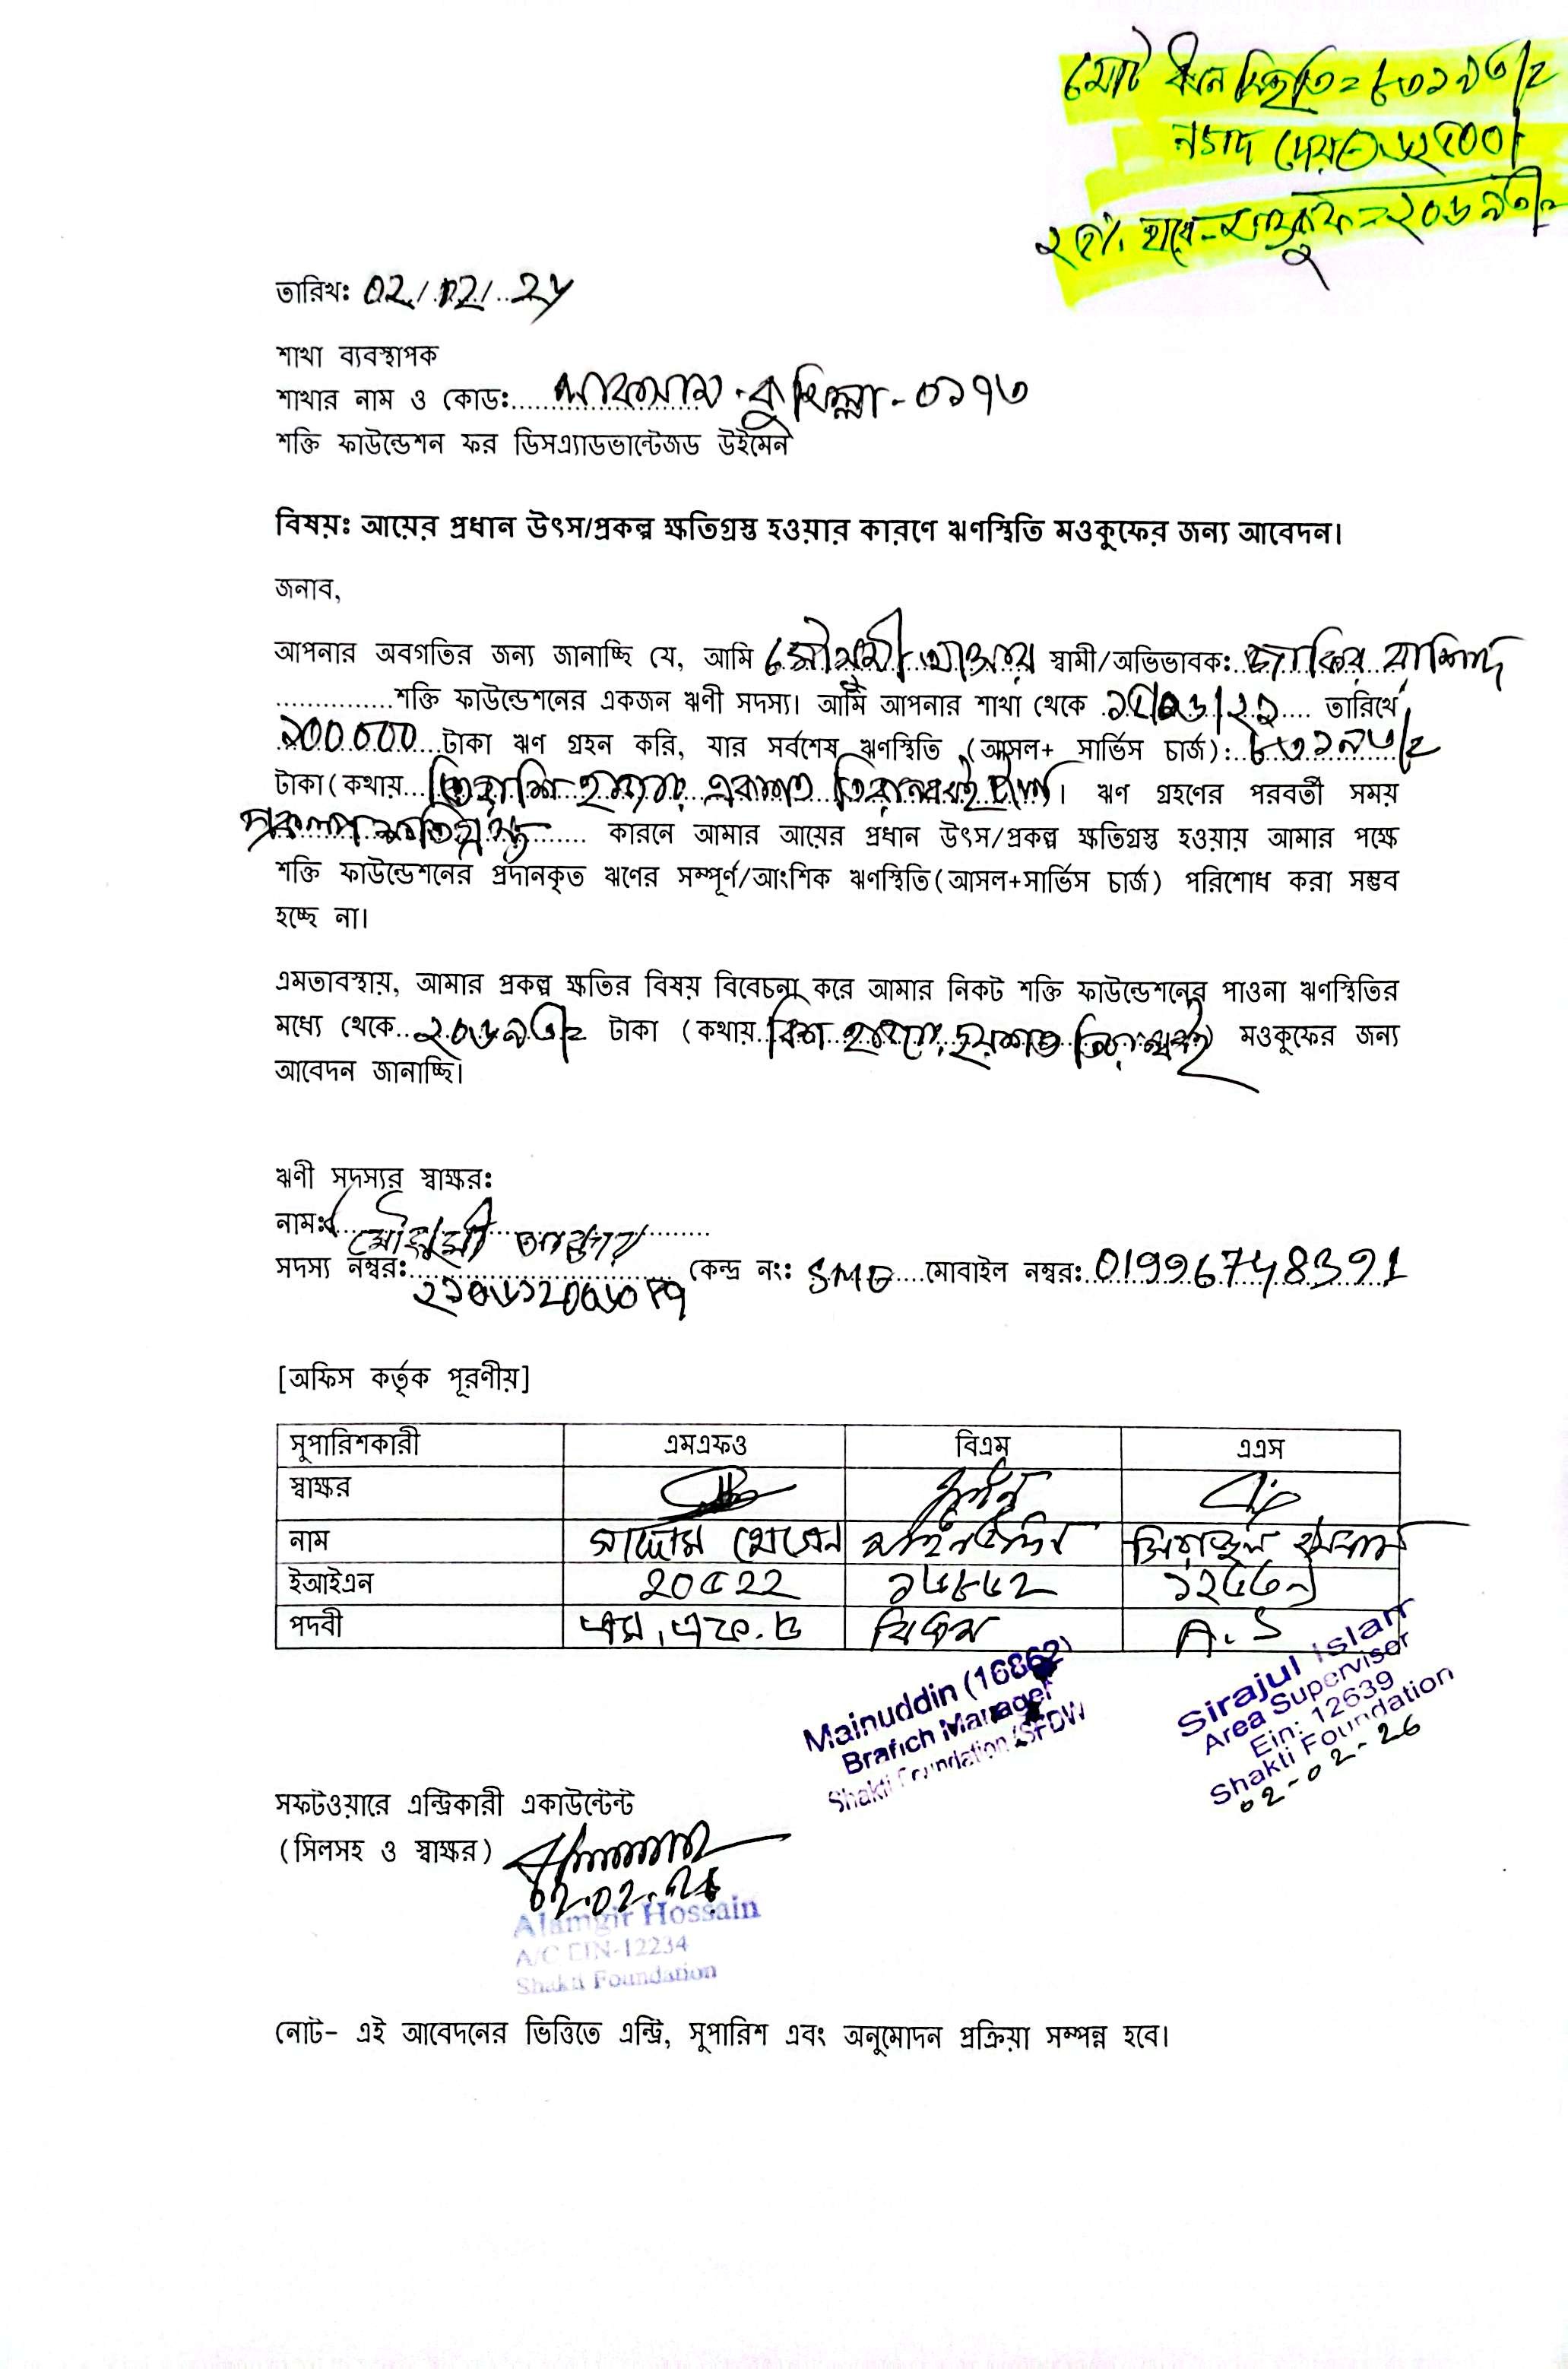 মোট ঋন স্থিতি= ৮৩১৯৩/=
নগদ দেয়⊖৬২৫০০/
২৫% হারে-মওকুফ=২০৬৯৩/=
তারিখঃ 02/02/26
শাখা ব্যবস্থাপক
শাখার নাম ও কোডঃ লাকসাম-কুমিল্লা-০১৭৩
শক্তি ফাউন্ডেশন ফর ডিসএ্যাডভান্টেজড উইমেন
বিষয়ঃ আয়ের প্রধান উৎস/প্রকল্প ক্ষতিগ্রস্ত হওয়ার কারণে ঋণস্থিতি মওকুফের জন্য আবেদন।
জনাব,
আপনার অবগতির জন্য জানাচ্ছি যে, আমি মৌসুমী আক্তার স্বামী/অভিভাবকঃ জাকির
শক্তি ফাউন্ডেশনের একজন ঋণী সদস্য। আমি আপনার শাখা থেকে তারিখে
১০০০০০ টাকা ঋণ গ্রহন করি, যার সর্বশেষ ঋণস্থিতি (আসল+ সার্ভিস চার্জ): ৮৩১৯৩/=
টাকা(কথায় তিরাশি হাজার একশত তিরানব্বই টাকা)। ঋণ গ্রহণের পরবর্তী সময়
প্রকল্প ক্ষতিগ্রস্ত কারনে আমার আয়ের প্রধান উৎস/প্রকল্প ক্ষতিগ্রস্ত হওয়ায় আমার পক্ষে
শক্তি ফাউন্ডেশনের প্রদানকৃত ঋণের সম্পূর্ণ/আংশিক ঋণস্থিতি(আসল+সার্ভিস চার্জ) পরিশোধ করা সম্ভব
হচ্ছে না।
এমতাবস্থায়, আমার প্রকল্প ক্ষতির বিষয় বিবেচনা করে আমার নিকট শক্তি ফাউন্ডেশনের পাওনা ঋণস্থিতির
মধ্যে থেকে ২০৬৯৩/= টাকা (কথায় বিশ হাজার ছয়শত তিরানব্বই) মওকুফের জন্য
আবেদন জানাচ্ছি।
ঋণী সদস্যর স্বাক্ষরঃ
নামঃ মৌসুমী আক্তার
সদস্য নম্বরঃ কেন্দ্র নংঃ SME মোবাইল নম্বরঃ 01996748391
[অফিস কর্তৃক পূরণীয়]
সুপারিশকারী এমএফও বিএম এএস
স্বাক্ষর
নাম সাদ্দাম হোসেন মাইনউদ্দিন সিরাজুল ইসলাম
ইআইএন 20522 ১৬৮৬2 ১২৬৩৯
পদবী এম.এফ.ও বিএম A.S
Mainuddin (16862)
Branch Manager
Shakti Foundation (SFDW
Sirajul Islam
Area Supervisor
Ein: 12639
Shakti Foundation
02-02-26
সফটওয়ারে এন্ট্রিকারী একাউন্টেন্ট
(সিলসহ ও স্বাক্ষর)
02.02.26
Alamgir Hossain
A/C EIN-12234
Shakti Foundation
নোট- এই আবেদনের ভিত্তিতে এন্ট্রি, সুপারিশ এবং অনুমোদন প্রক্রিয়া সম্পন্ন হবে।